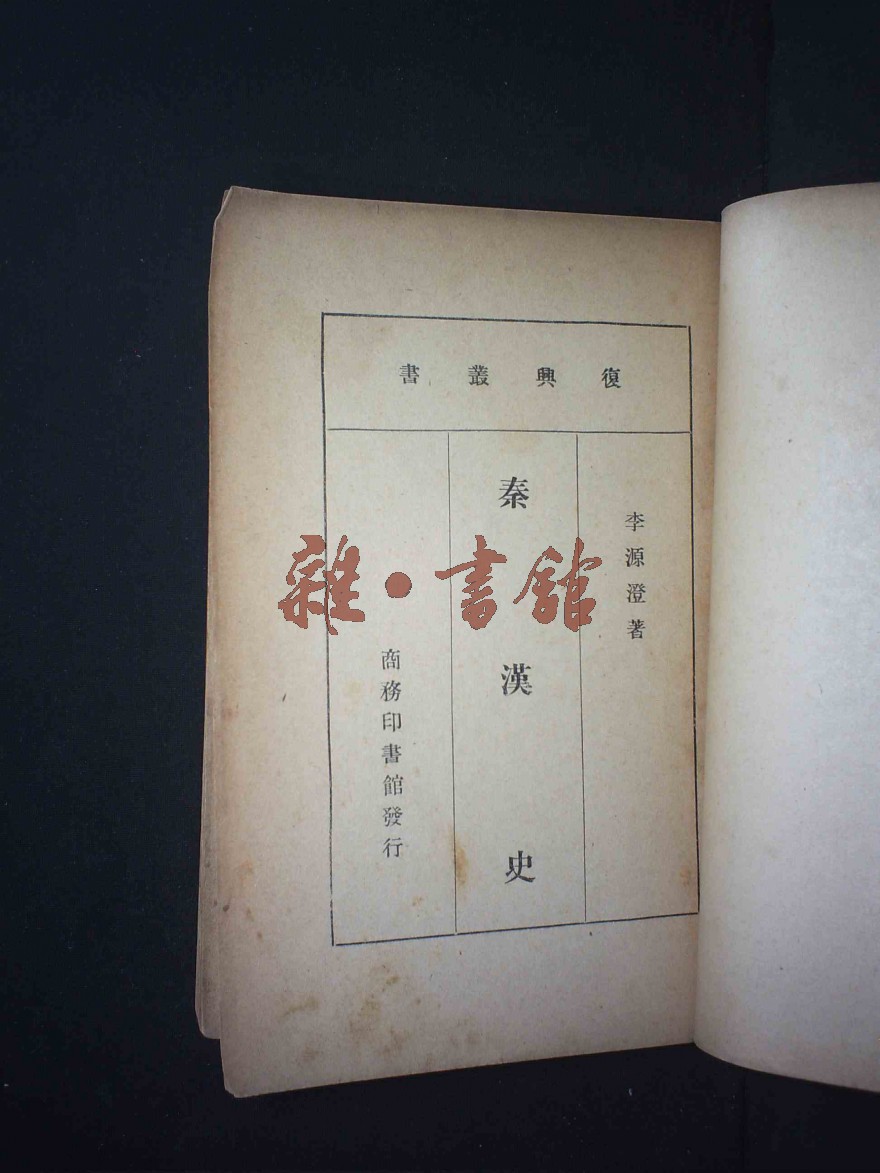 復興叢書
李源澄著
秦漢史
商務印書館發行
雜·書館